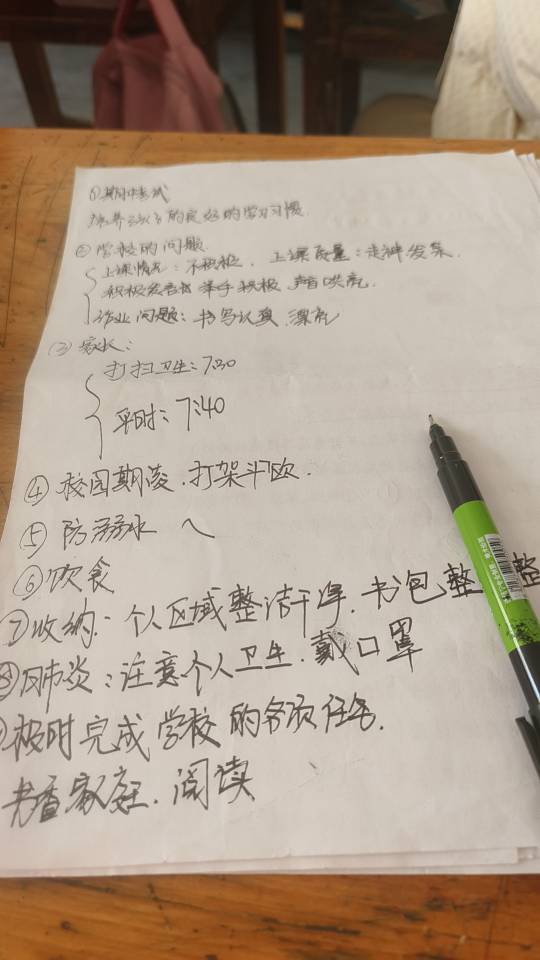 ①期中考试
培养孩子的良好的学习习惯
②学校的问题
上课情况:不积极. 上课质量:走神发呆.
积极发言 举手积极 声音洪亮.
作业问题:书写认真.漂亮
③家长:
打扫卫生:7:30
平时:7:40
④校园期凌.打架斗殴.
⑤防溺水
⑥饮食
⑦收纳:个人区域整洁干净.书包整 整
⑧肺炎:注意个人卫生.戴口罩
极时完成学校的各项任务.
书香家庭.阅读